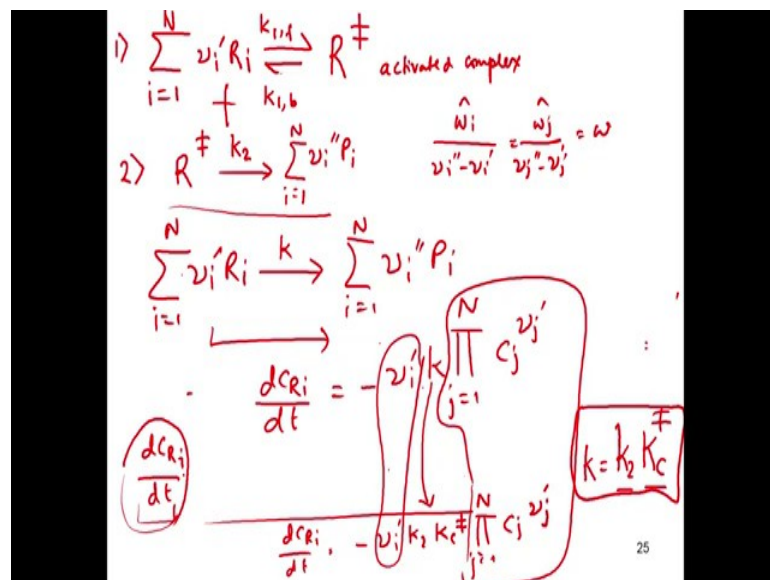 1) \sum_{i=1}^{N} ν_i' R_i ⇌ (k_{1,f} / k_{1,b}) R^‡ activated complex
+
ŵ_i / (ν_i'' - ν_i') = ŵ_j / (ν_j'' - ν_j') = ω
2) R^‡ \xrightarrow{k_2} \sum_{i=1}^{N} ν_i'' P_i
\sum_{i=1}^{N} ν_i' R_i \xrightarrow{k} \sum_{i=1}^{N} ν_i'' P_i
dC_{Ri}/dt = - ν_i' k \prod_{j=1}^{N} C_j^{ν_j'}
dC_{Ri}/dt
k = k_2 K_c^‡
dC_{Ri}/dt . - ν_i' k_2 K_c^‡ \prod_{j=1}^{N} C_j^{ν_j'}
25